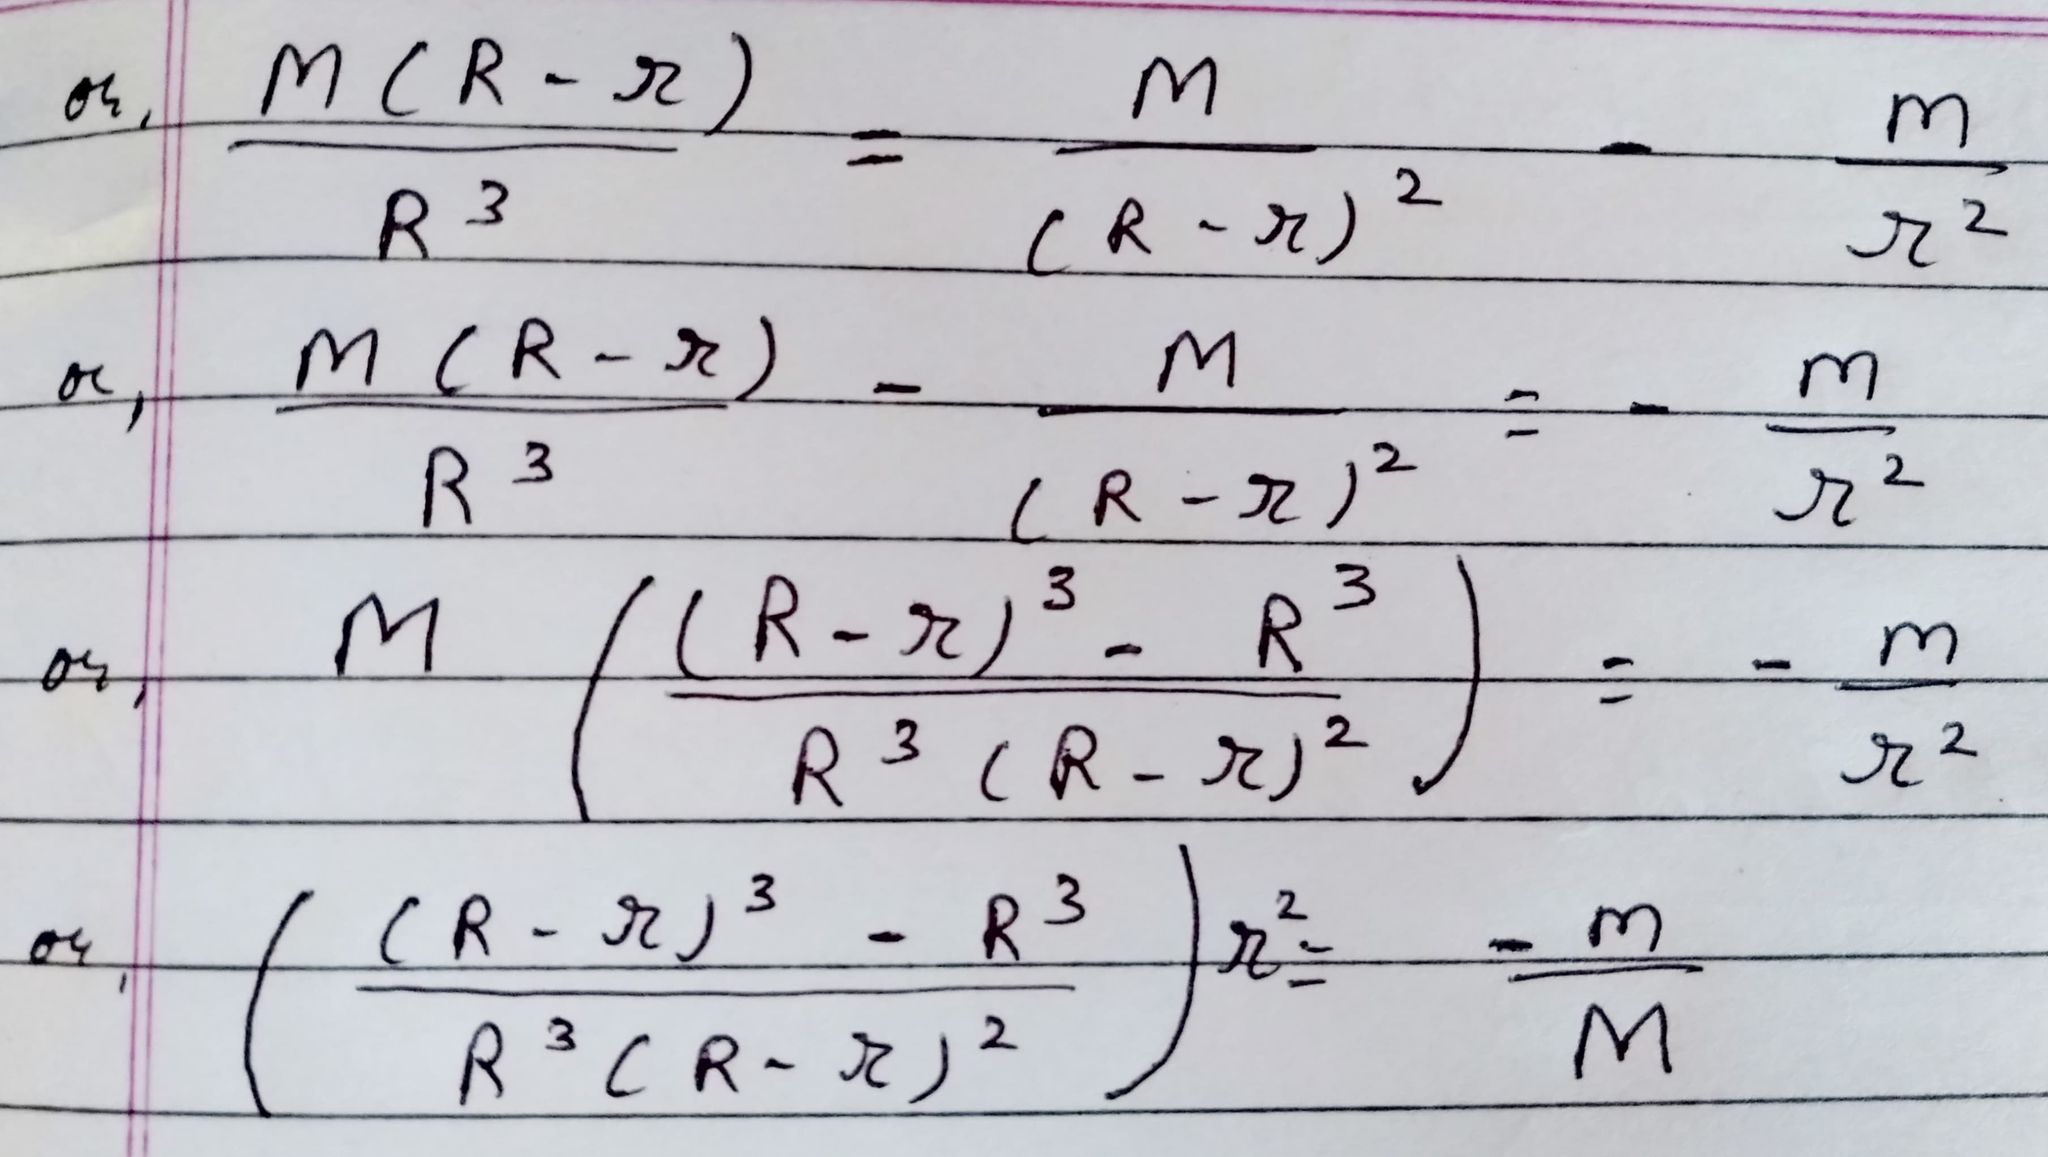 or, M(R-r)/R³ = M/(R-r)² - m/r²
or, M(R-r)/R³ - M/(R-r)² = - m/r²
or, M(((R-r)³ - R³)/(R³(R-r)²)) = - m/r²
or, (((R-r)³ - R³)/(R³(R-r)²))r² = -m/M